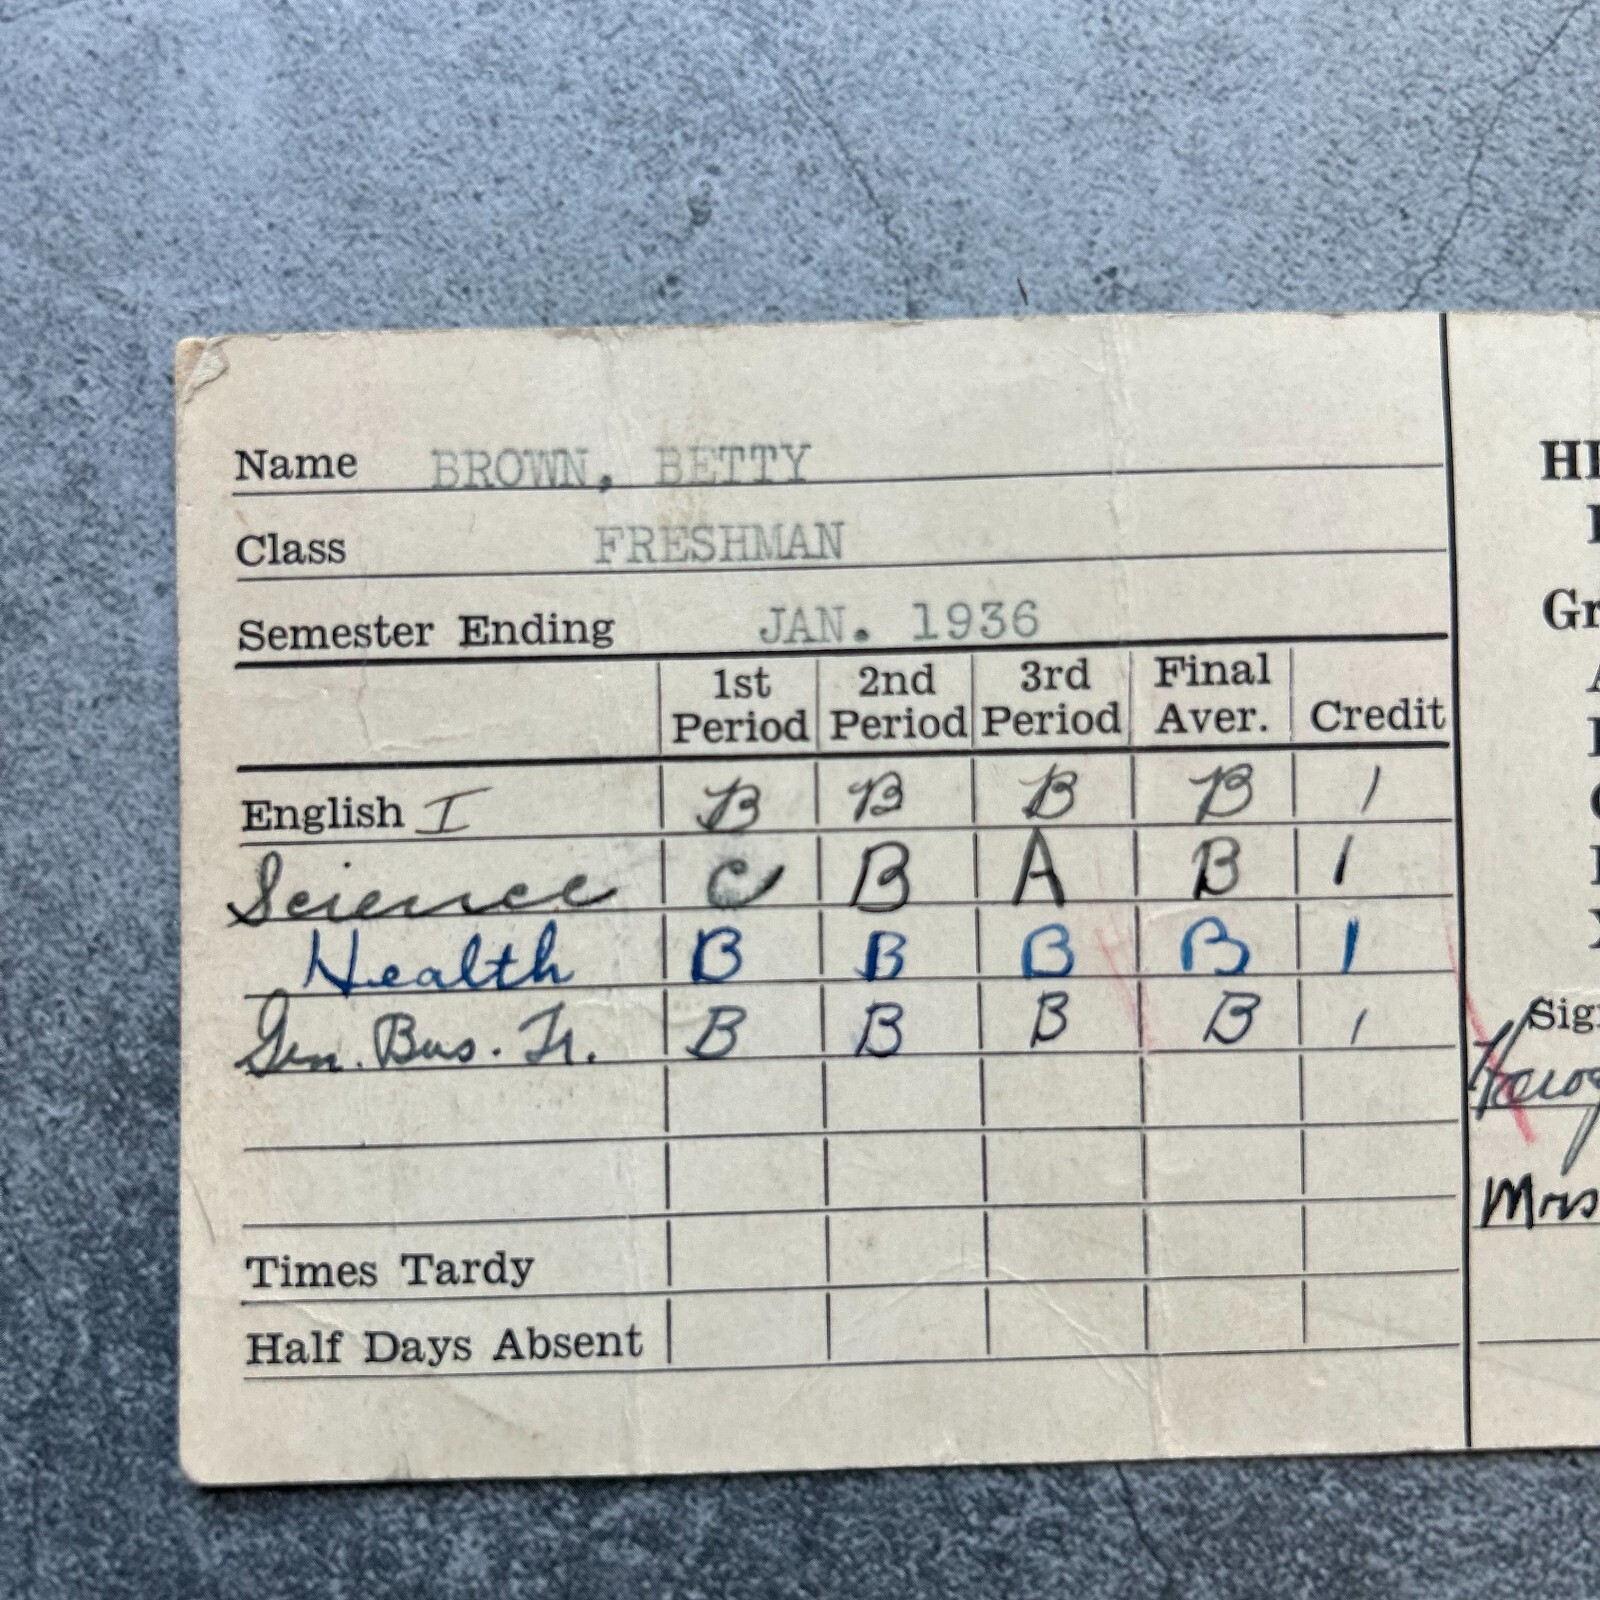 Name BROWN, BETTY
Class FRESHMAN
Semester Ending JAN. 1936
1st Period 2nd Period 3rd Period Final Aver. Credit
English I B B B B 1
Science C B A B 1
Health B B B B 1
Gen. Bus. Tr. B B B B 1
Times Tardy
Half Days Absent
Mrs